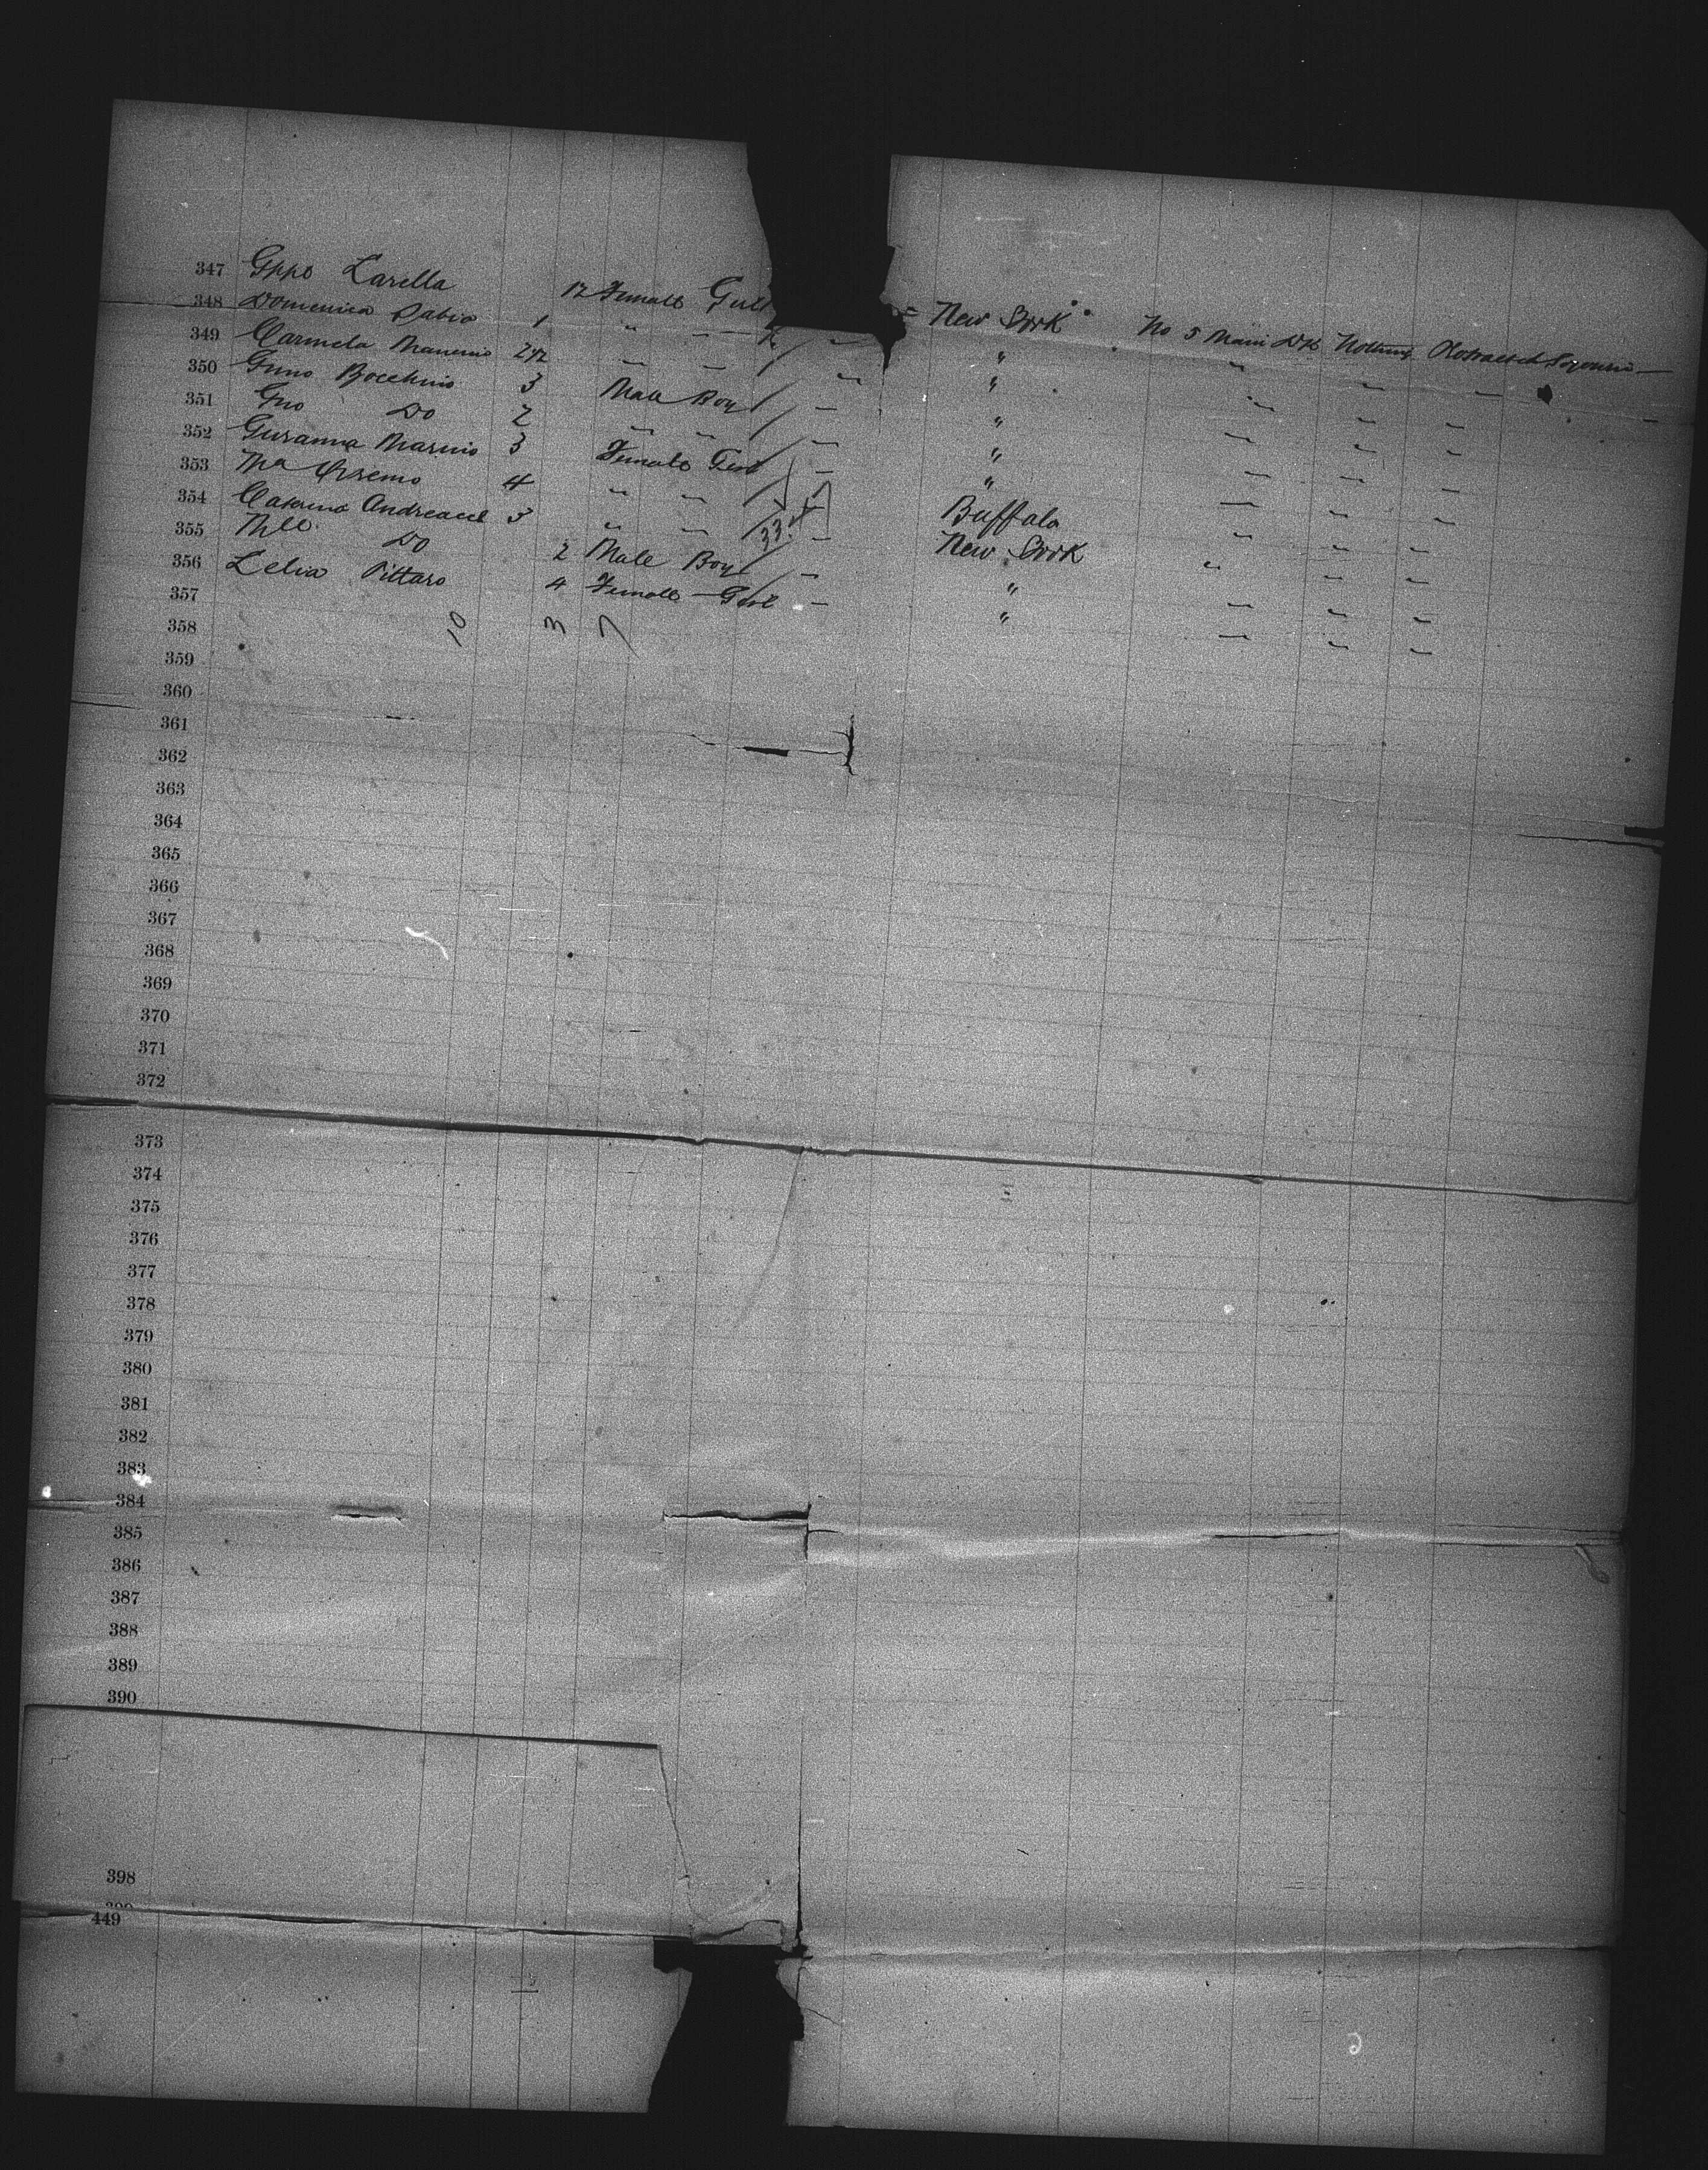 347 Gppo Larella 12 Female Girl New York No 5 Main Dk Nothing Protracted Sojourn —
348 Domenica Sabia 1 " " — " " " "
349 Carmela 2 1/2 " " — " " " "
350 Gmo Bocchino 3 Male Boy — " " " "
351 Gno Do 2 " " — " " " "
352 Gusanna Marino 3 Female Girl — " " " "
353 Ma Orsemo 4 " " Buffalo " " "
354 Caterina 3 " " 33 — New York " " "
355 Do 2 Male Boy — " " " "
356 Lelia Pittaro 4 Female Girl — " " " "
357
358 10 3 7
359
360
361
362
363
364
365
366
367
368
369
370
371
372
373
374
375
376
377
378
379
380
381
382
383
384
385
386
387
388
389
390
398
449